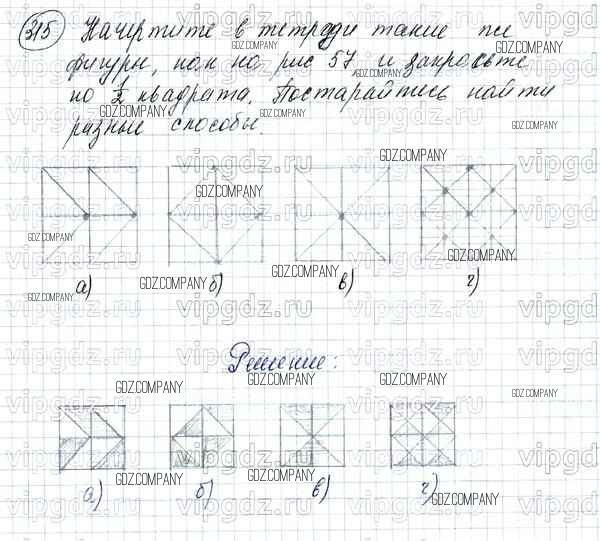 315 Начертите в тетради такие же
фигуры, как на рис 57, и закрасьте
по 1/2 квадрата. Постарайтесь найти
разные способы.
а) б) в) г)
Решение:
а) б) в) г)
GDZ.COMPANY
vipgdz.ru